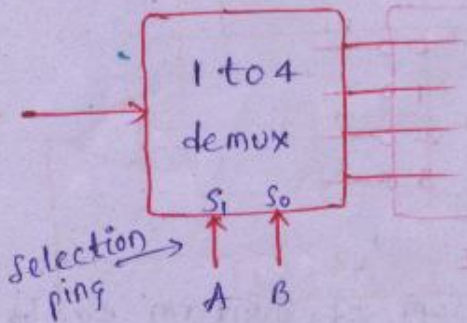 1 to 4
demux
S1 S0
selection
ping
A B